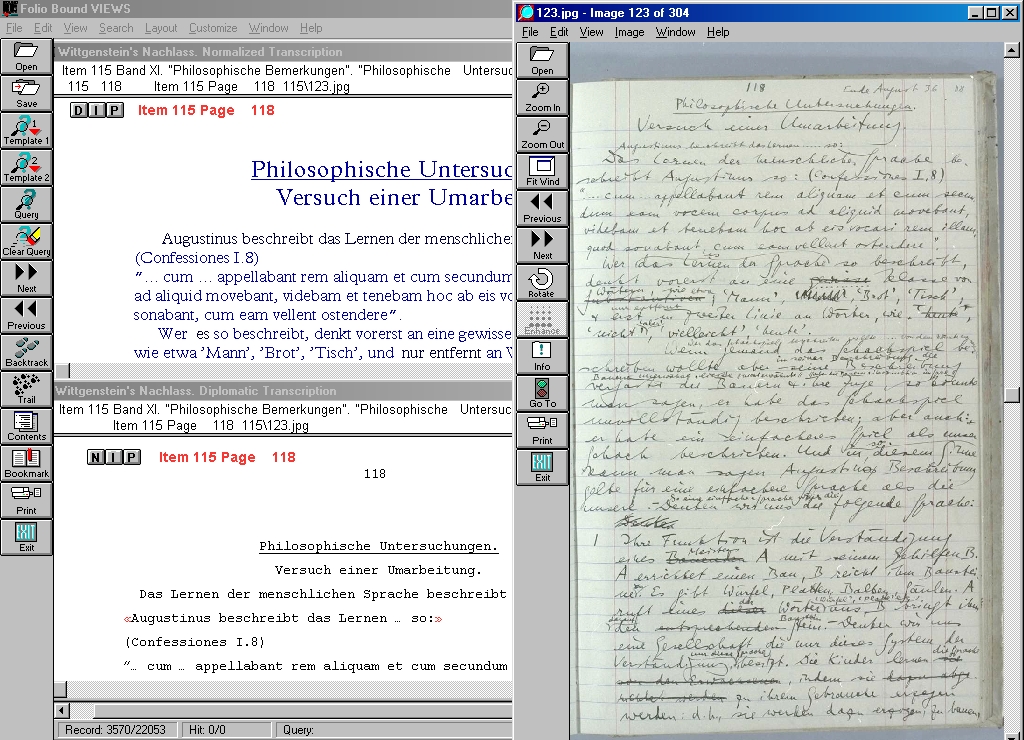 Folio Bound VIEWS
File Edit View Search Layout Customize Window Help
Open
Save
Template 1
Template 2
Query
Clear Query
Next
Previous
Backtrack
Trail
Contents
Bookmark
Print
Exit
Wittgenstein's Nachlass. Normalized Transcription
Item 115 Band XI. "Philosophische Bemerkungen". "Philosophische Untersuc
115 118 Item 115 Page 118 115\123.jpg
D I P Item 115 Page 118
Philosophische Untersuc
Versuch einer Umarbe
Augustinus beschreibt das Lernen der menschliche
(Confessiones I.8)
"… cum … appellabant rem aliquam et cum secundum
ad aliquid movebant, videbam et tenebam hoc ab eis vo
sonabant, cum eam vellent ostendere".
Wer es so beschreibt, denkt vorerst an eine gewisse
wie etwa 'Mann', 'Brot', 'Tisch', und nur entfernt an W
Wittgenstein's Nachlass. Diplomatic Transcription
Item 115 Band XI. "Philosophische Bemerkungen". "Philosophische Untersuc
Item 115 Page 118 115\123.jpg
N I P Item 115 Page 118
118
Philosophische Untersuchungen.
Versuch einer Umarbeitung.
Das Lernen der menschlichen Sprache beschreibt
«Augustinus beschreibt das Lernen … so:»
(Confessiones I.8)
"… cum … appellabant rem aliquam et cum secundum
Record: 3570/22053 Hit: 0/0 Query:
123.jpg - Image 123 of 304
File Edit View Image Window Help
Open
Zoom In
Zoom Out
Fit Wind
Previous
Next
Rotate
Enhance
Info
Go To
Print
Exit
118 Ende August 36
Philosophische Untersuchungen.
Versuch einer Umarbeitung.
Augustinus beschreibt das Lernen … so:
Das Lernen der menschlichen Sprache be-
schreibt Augustinus so: (Confessiones I,8)
"… cum … appellabant rem aliquam et cum secun
dum eam vocem corpus ad aliquid movebant,
videbam et tenebam hoc ab eis vocari rem illam,
quod sonabant, cum eam vellent ostendere"
Wer das Lernen der Sprache so beschreibt,
denkt vorerst an eine gewisse Klasse von
'Mann', 'Brot', 'Tisch',
& erst in zweiter Linie an Wörter, wie 'heute',
'nicht', 'vielleicht', 'heute'.
Wenn jemand das Schachspiel be-
schreiben wollte, aber seine Beschreibung
man sagen, er habe das Schachspiel
unvollständig beschrieben, aber auch:
er habe ein einfacheres Spiel als unser
Schach beschrieben. Und in diesem Sinne
kann man sagen Augustinus Beschreibung
gelte für eine einfachere Sprache als die
unsere. – Denken wir uns die folgende Sprache:
1 Ihre Funktion ist die Verständigung
eines Bauenden Meisters A mit seinem Gehilfen B.
A errichtet einen Bau, B reicht ihm Baustei
ne. Es gibt Würfel, Platten, Balken, Säulen. A
ruft eines dieser Wörter aus, B bringt ihm
den entsprechenden Stein. – Denken wir uns
eine Gesellschaft die nur dieses System der
Verständigung besitzt. Die Kinder lernen
von den Erwachsenen, indem sie dazu abge-
richtet werden zu ihrem Gebrauche erzogen
werden: d.h., sie werden dazu erzogen, zu bauen,